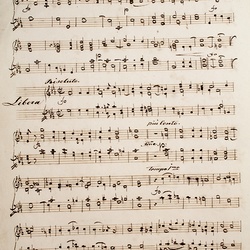 Risoluto.
Libera
più lento.
tempo 1mo